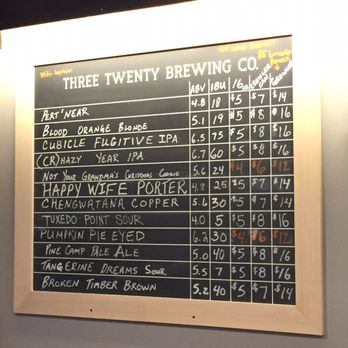 THREE TWENTY BREWING CO.
ABV IBU 16oz
PERT' NEAR 4.8 18 $5 $7 $14
BLOOD ORANGE BLONDE 5.1 19 $5 $8 $16
CUBICLE FUGITIVE IPA 6.5 75 $5 $8 $16
(CR)HAZY YEAR IPA 6.7 60 $5 $8 $16
NOT YOUR GRANDMA'S CHRISTMAS COOKIE 5.6 24 $4 $6 $12
HAPPY WIFE PORTER 4.8 25 $5 $7 $14
CHENGWATANA COPPER 5.6 30 $5 $7 $14
TUXEDO POINT SOUR 4.0 5 $5 $8 $16
PUMPKIN PIE EYED 6.2 30 $4 $6 $12
PINE CAMP PALE ALE 5.0 40 $5 $8 $16
TANGERINE DREAMS SOUR 5.5 7 $5 $8 $16
BROKEN TIMBER BROWN 5.2 40 $5 $7 $14